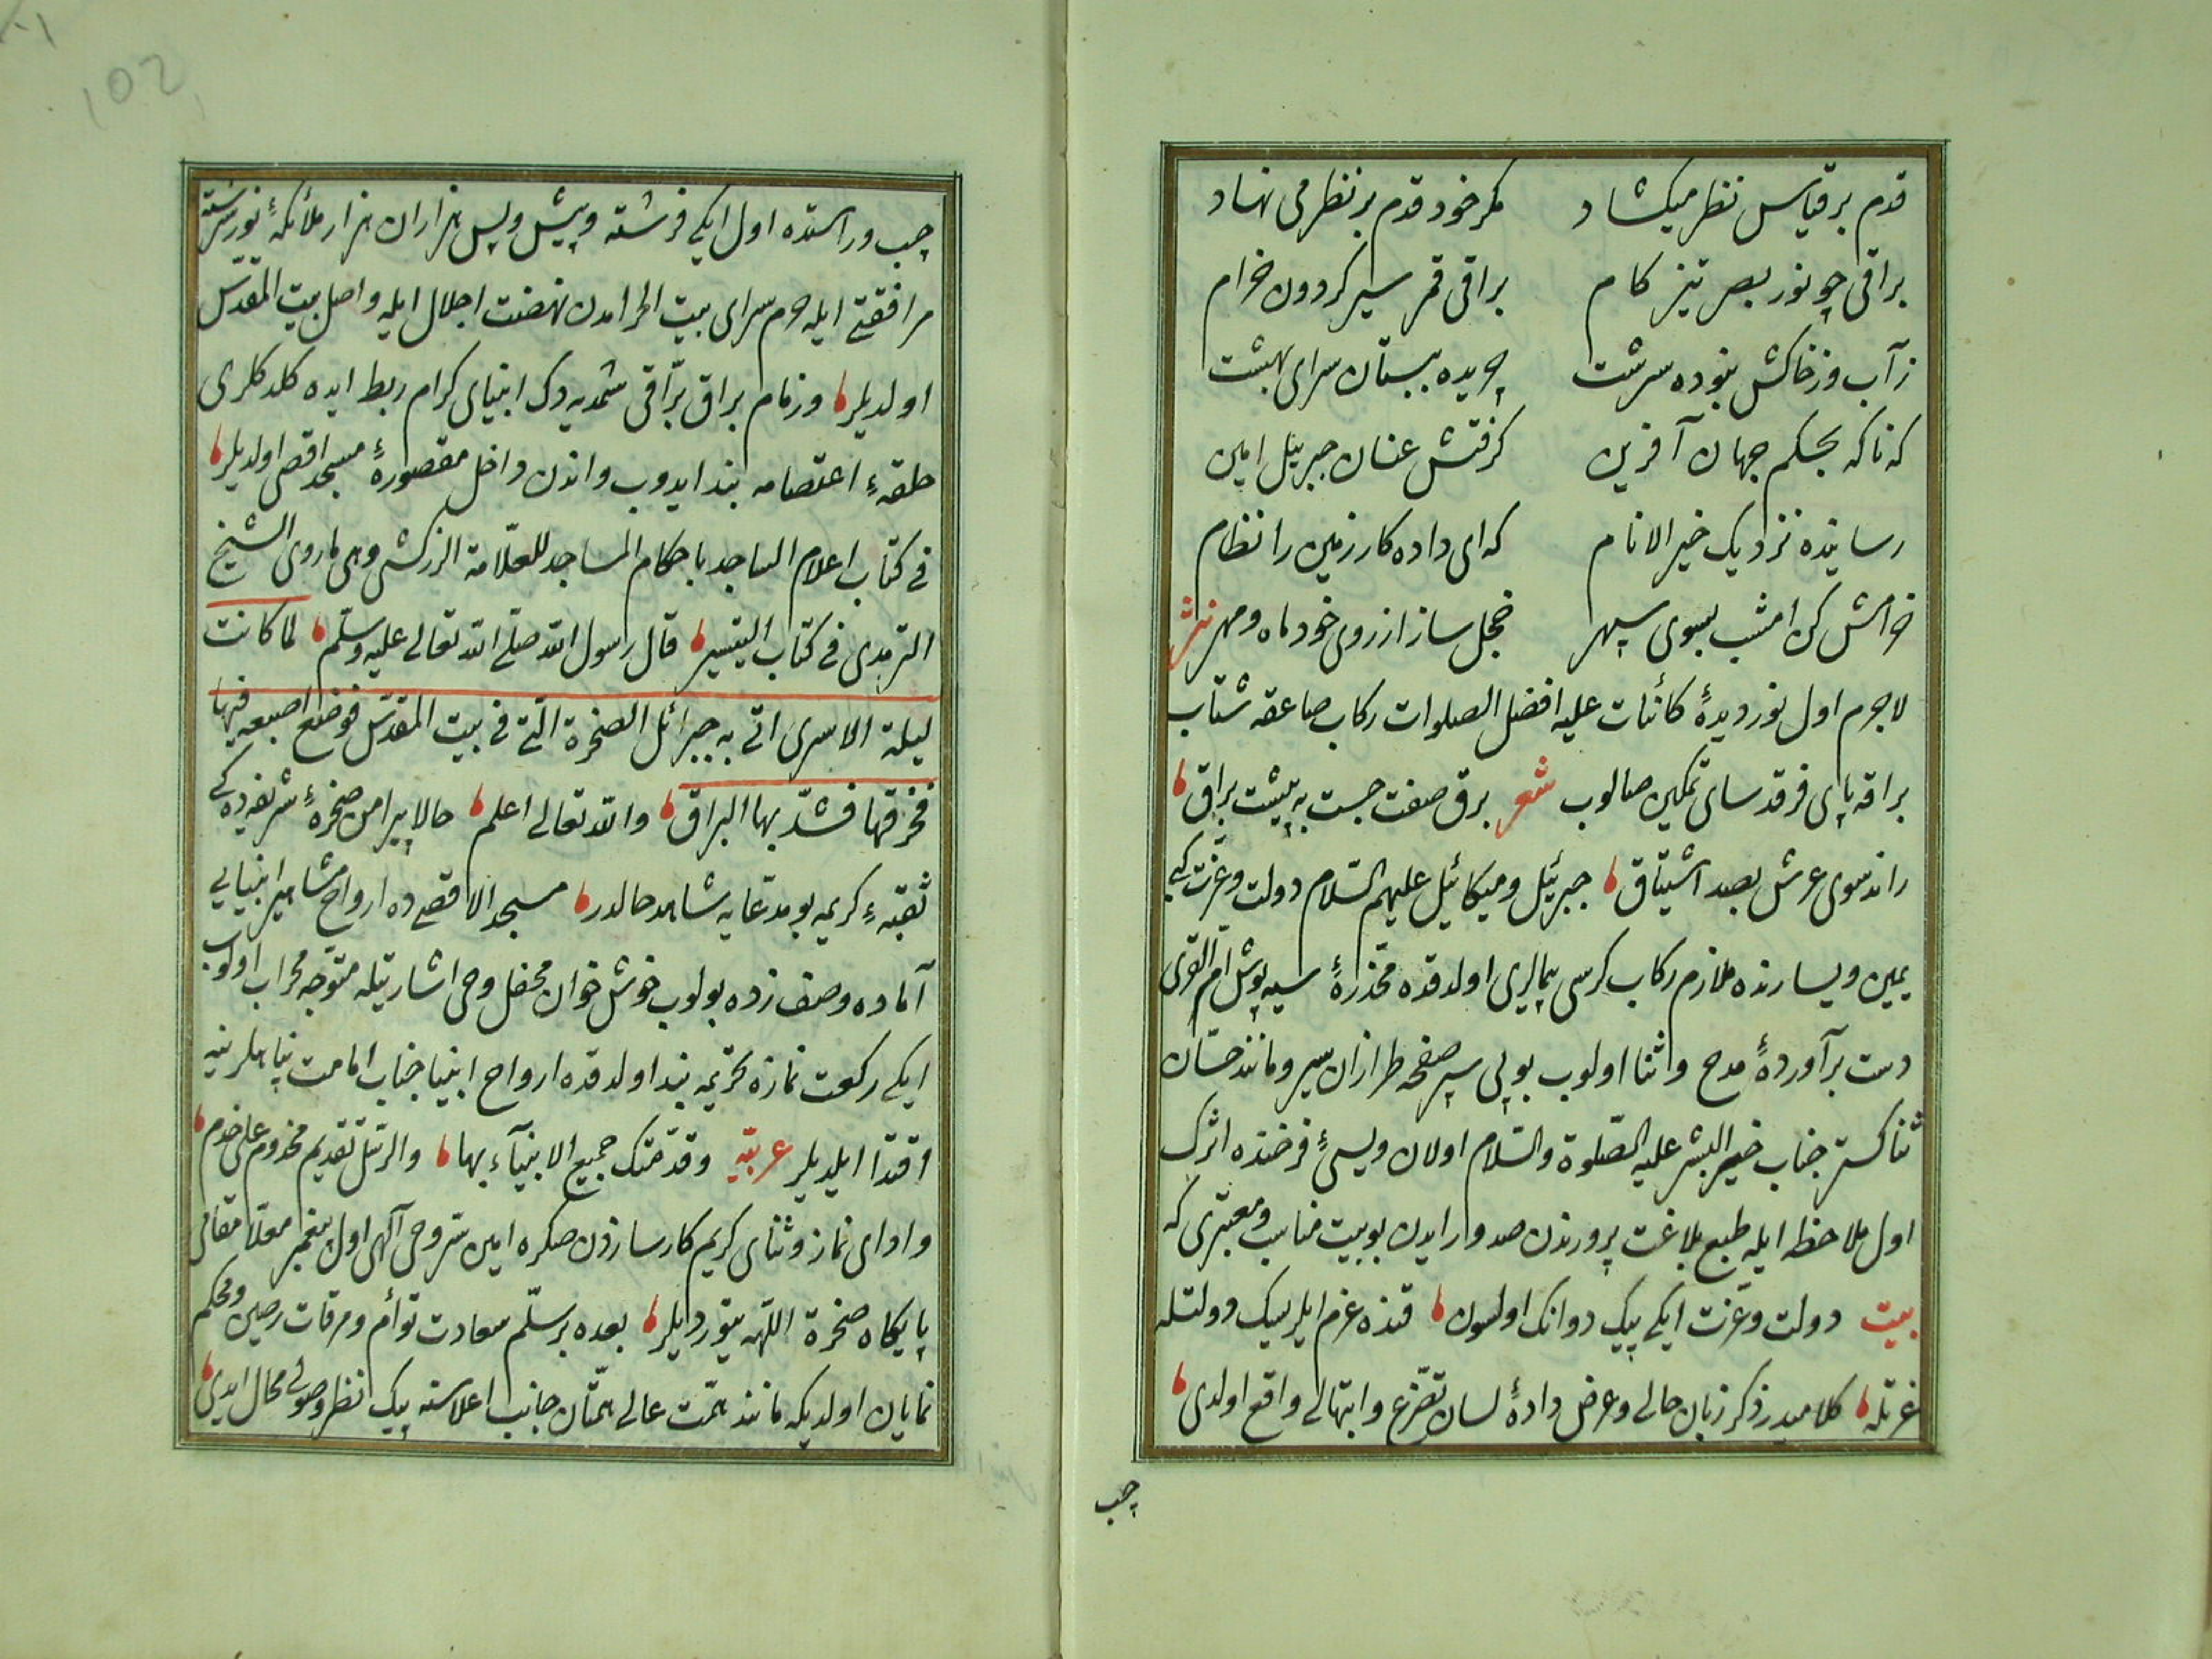 قدم بر قیاس نظر میکشاد مکر خود قدم بر نظر می نهاد
براقی چو نور بصر تیز کام براقی قمر سیر کردون خرام
ز آب و ز خاکش نبوده سرشت چریده ببستان سرای بهشت
که ناکه بحکم جهان آفرین کرفتش عنان جبرئیل امین
رسانیده نزدیک خیر الانام که ای داده کار زمین را نظام
خرامش کن امشب بسوی سپهر خجل ساز از روی خود ماه و مهر نثر
لاجرم اول نور دیدهٔ کائنات علیه افضل الصلوات رکاب صاعقه شتاب
براقه پای فرقدسای تمکین صالوب شعر برق صفت جست به پشت براق
راند سوی عرش بصد اشتیاق جبرئیل و میکائیل علیهم السّلام دولت و عزّت کبی
یمین و یسارنده ملازم رکاب کرسی اولدقده مخدّرهٔ سیه پوش امّ القری
دست برآوردهٔ مدح و اثنا اولوب بویی سر صفحه طرازان سیر و مانند حسّان
ثنا کستر جناب خیر البشر علیه الصّلوة والسّلام اولان ویسیٔ فرخنده اثرک
اول ملاحظه ایله طبع بلاغت پرورندن صدور ایدن بو بیت مناسب و معتبری که
بیت دولت و عزّت ایکی پیک دوانک اولسون قنده عزم ایلر سک دولتله
عزتله کلامیدر ذکر زبان حالی و عرض دادهٔ لسان تضرّع و ابتهالی واقع اولدی
چپ
102
چپ و راستده اول ایکی فرشته و پیش و پس هزاران هزار ملائکهٔ نور سرشته
مرافقتی ایله حرم سرای بیت الحرامدن نهضت اجلال ایله واصل بیت المقدّس
اولدیلر و زمام براق برّاقی شمدیه دک انبیای کرام ربط ایده کلدکلری
حلقهٔ اعتصامه بند ایدوب واندن داخل مقصورهٔ مسجد اقصی اولدیلر
فی کتاب اعلام الساجد باحکام المساجد للعلّامة الزرکشی وهی ما روی الشیخ
الترمذی فی کتاب التیسیر قال رسول الله صلّی الله تعالی علیه وسلّم لما کانت
لیلة الاسری اتی به جبرائل الصخرة الّتی فی بیت المقدّس فوضع اصبعیه فیها
فخرقها فشدّ بها البراق والله تعالی اعلم حالا پیرامن صخرهٔ شریفه ده کی
ثقبهٔ کریمه بو مدّعایه شاهد حالدر مسجد الاقصی ده ارواح مشاهیر انبیایی
آماده و صف زده بولوب خوش خوان محفل وحی اشارتیله متوجّه محراب اولوب
ایکی رکعت نمازه تحریمه بند اولدقده ارواح انبیا جناب امامت پناهلرینه
اقتدا ایلدیلر عربیّه وقدّمتک جمیع الانبیآء بها والرسل تقدیم مخدوم علی خدم
و ادای نماز و ثنای کریم کارسازدن صکره امین سرّ وحی آلهی اول پیغمبر معلّا مقامی
پایکاه صخرة اللّهه یتوردیلر بعده بر سلّم سعادت توأم و مرقات رصین و محکم
نمایان اولدیکه مانند همّت عالی همّتان جانب اعلاسنه پیک نظر وصولی محال ایدی